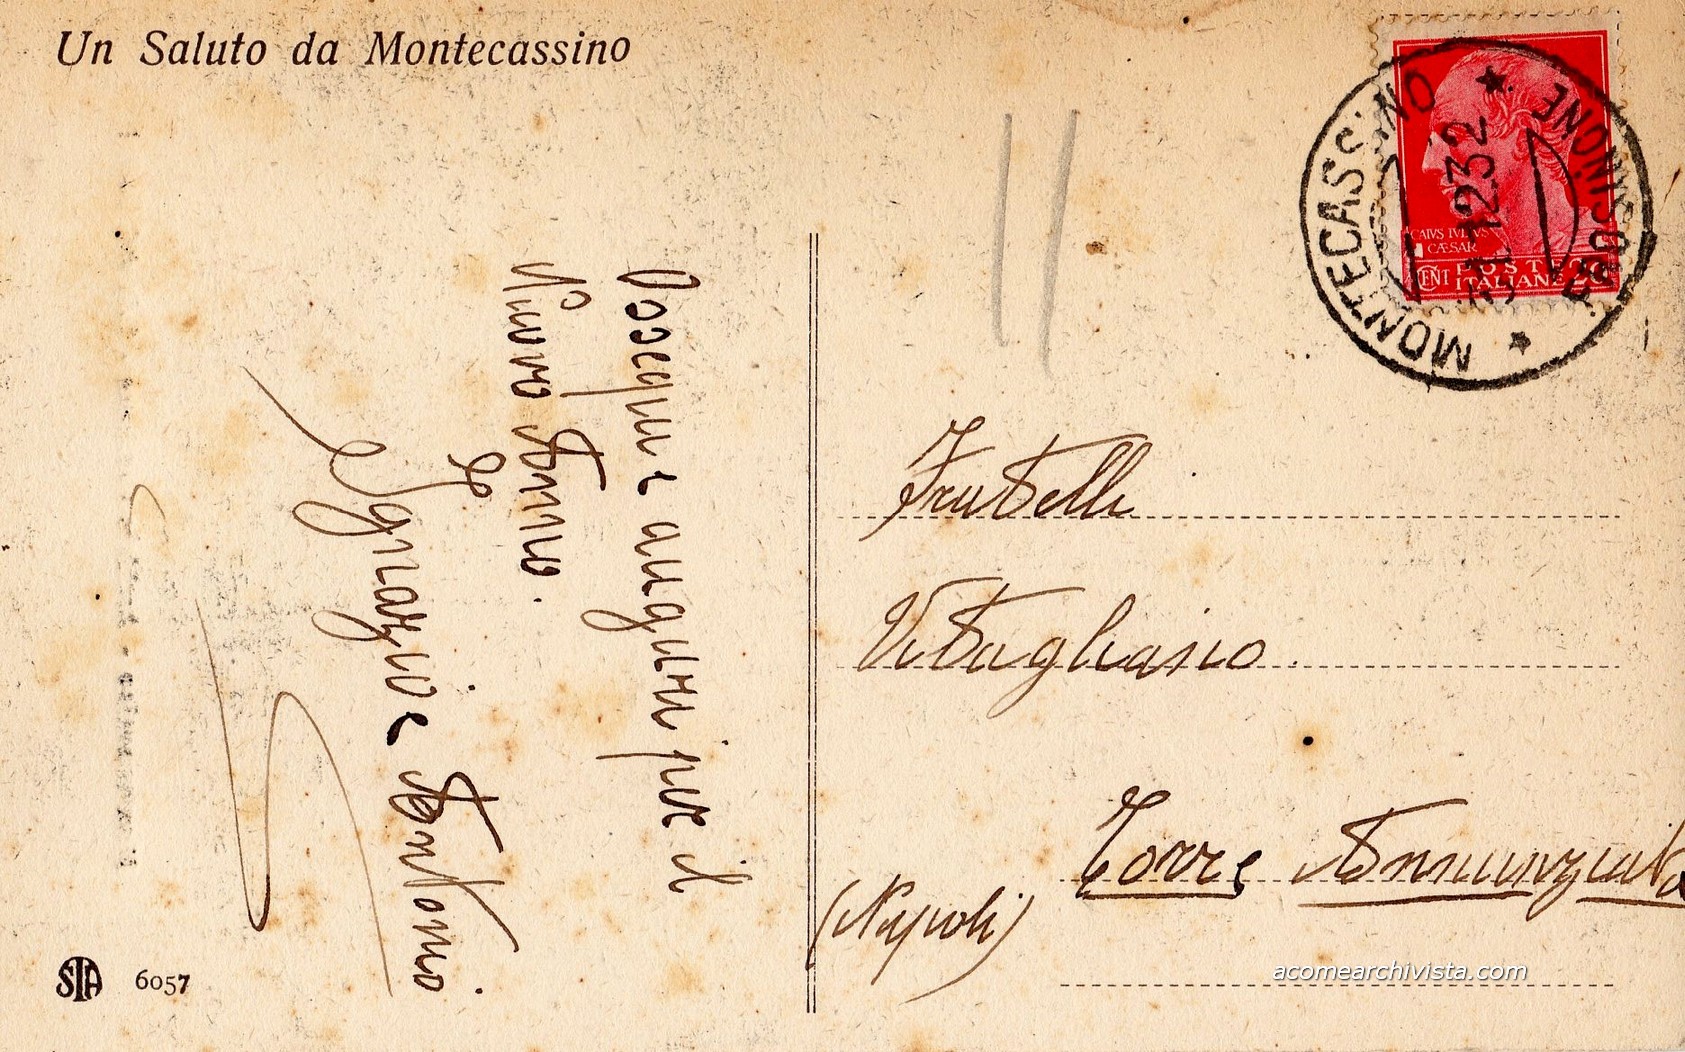 Un Saluto da Montecassino
Ossequi e auguri per il
Nuovo Anno.
Ignazio e Antonio
STA 6057
MONTECASSINO
FROSINONE
12 32
CAIVS IVLIVS
CÆSAR
CENT POSTE 20
ITALIANE
Fratelli
Vitagliano.
Torre Annunziata
(Napoli)
acomearchivista.com